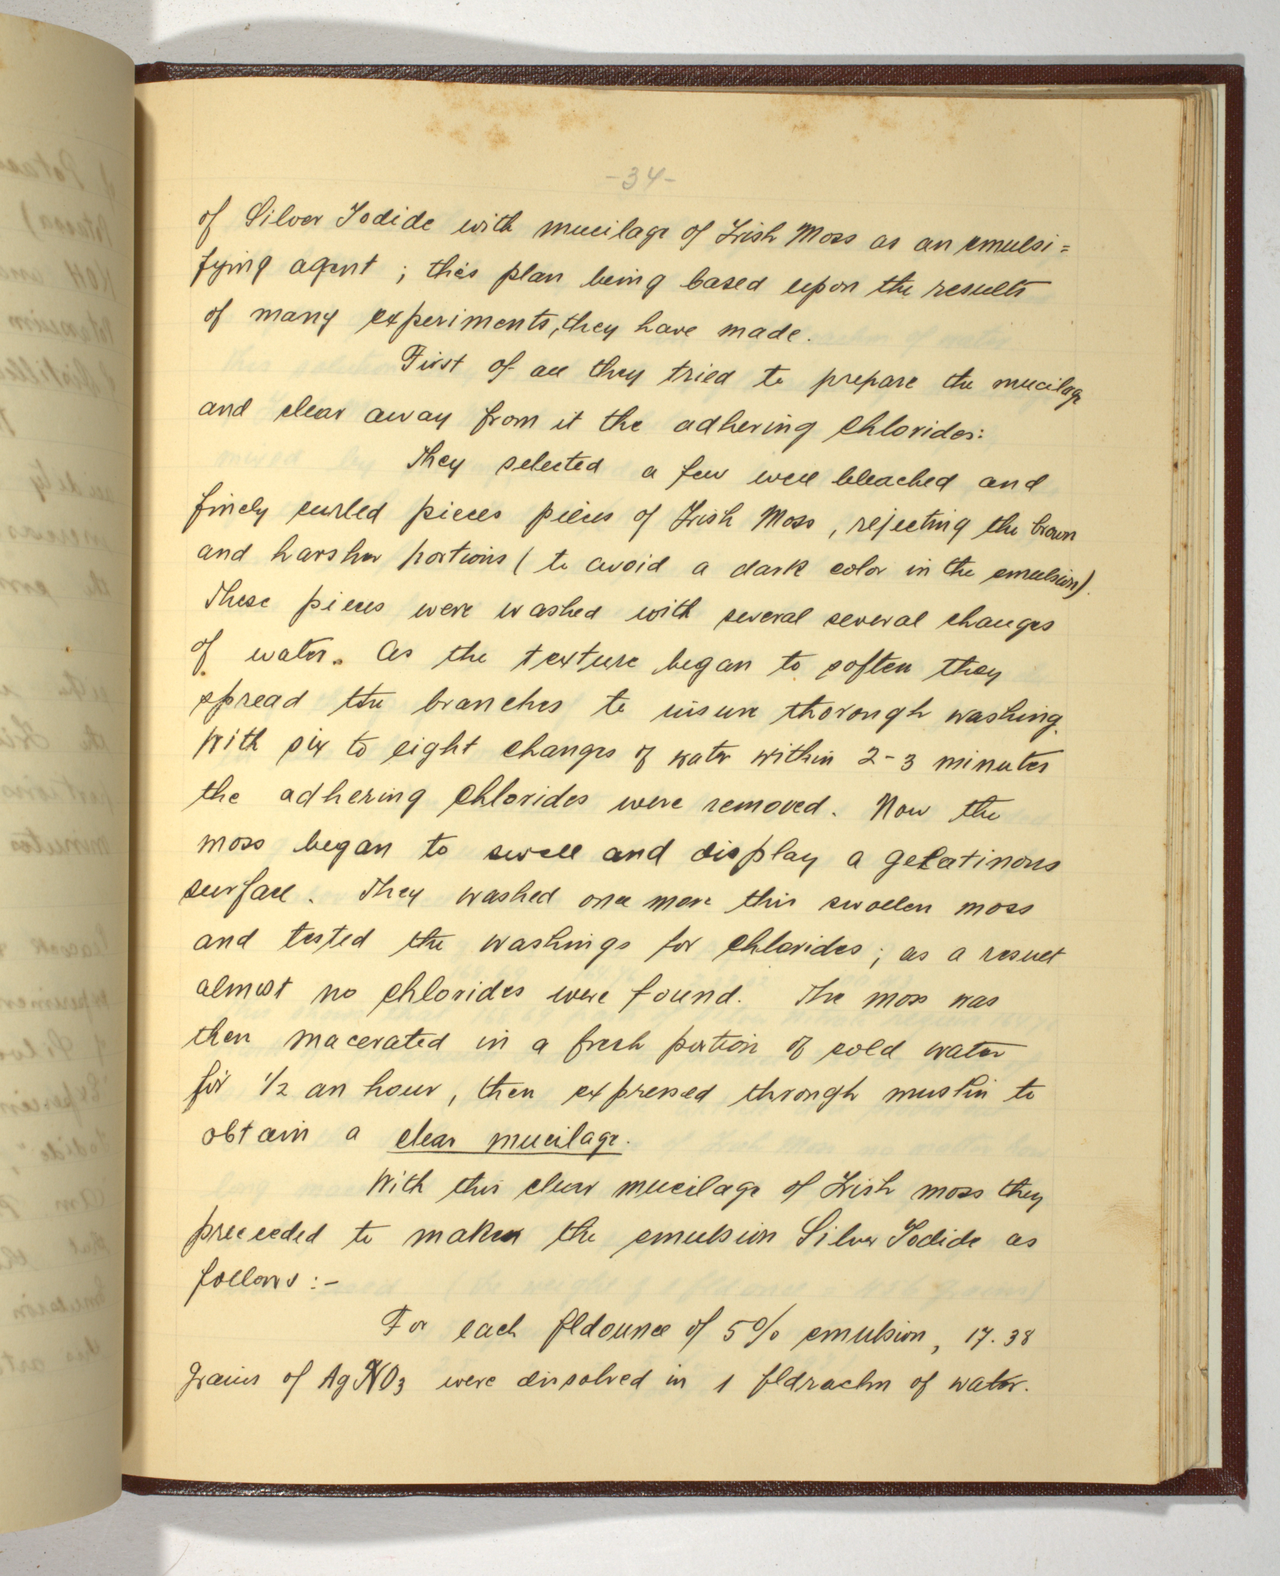 -34-
of Silver Iodide with mucilage of Irish Moss as an emulsi=
fying agent ; this plan being based upon the results
of many experiments, they have made.
First of all they tried to prepare the mucilage
and clear away from it the adhering Chlorides:
They selected a few well bleached and
finely curled pieces pieces of Irish Moss, rejecting the brown
and harsher portions ( to avoid a dark color in the emulsion).
These pieces were washed with several several changes
of water. As the texture began to soften they
spread the branches to insure thorough washing.
With six to eight changes of water within 2-3 minutes
the adhering Chlorides were removed. Now the
moss began to swell and display a gelatinous
surface. They washed once more this swollen moss
and tested the washings for Chlorides ; as a result
almost no chlorides were found. The moss was
then macerated in a fresh portion of cold water
for 1/2 an hour, then expressed through muslin to
obtain a clear mucilage.
With this clear mucilage of Irish moss they
preceeded to make the emulsion Silver Iodide as
follows :-
For each fldounce of 5% emulsion, 17.38
grains of AgNO3 were dissolved in 1 fldrachm of water.